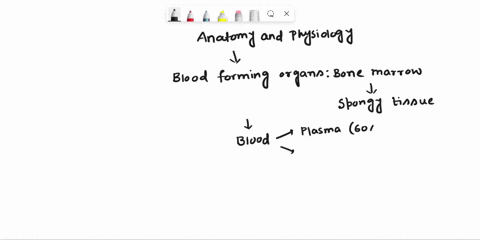 Anatomy and Physiology
Blood forming organs: Bone marrow
Spongy tissue
Blood
Plasma (60